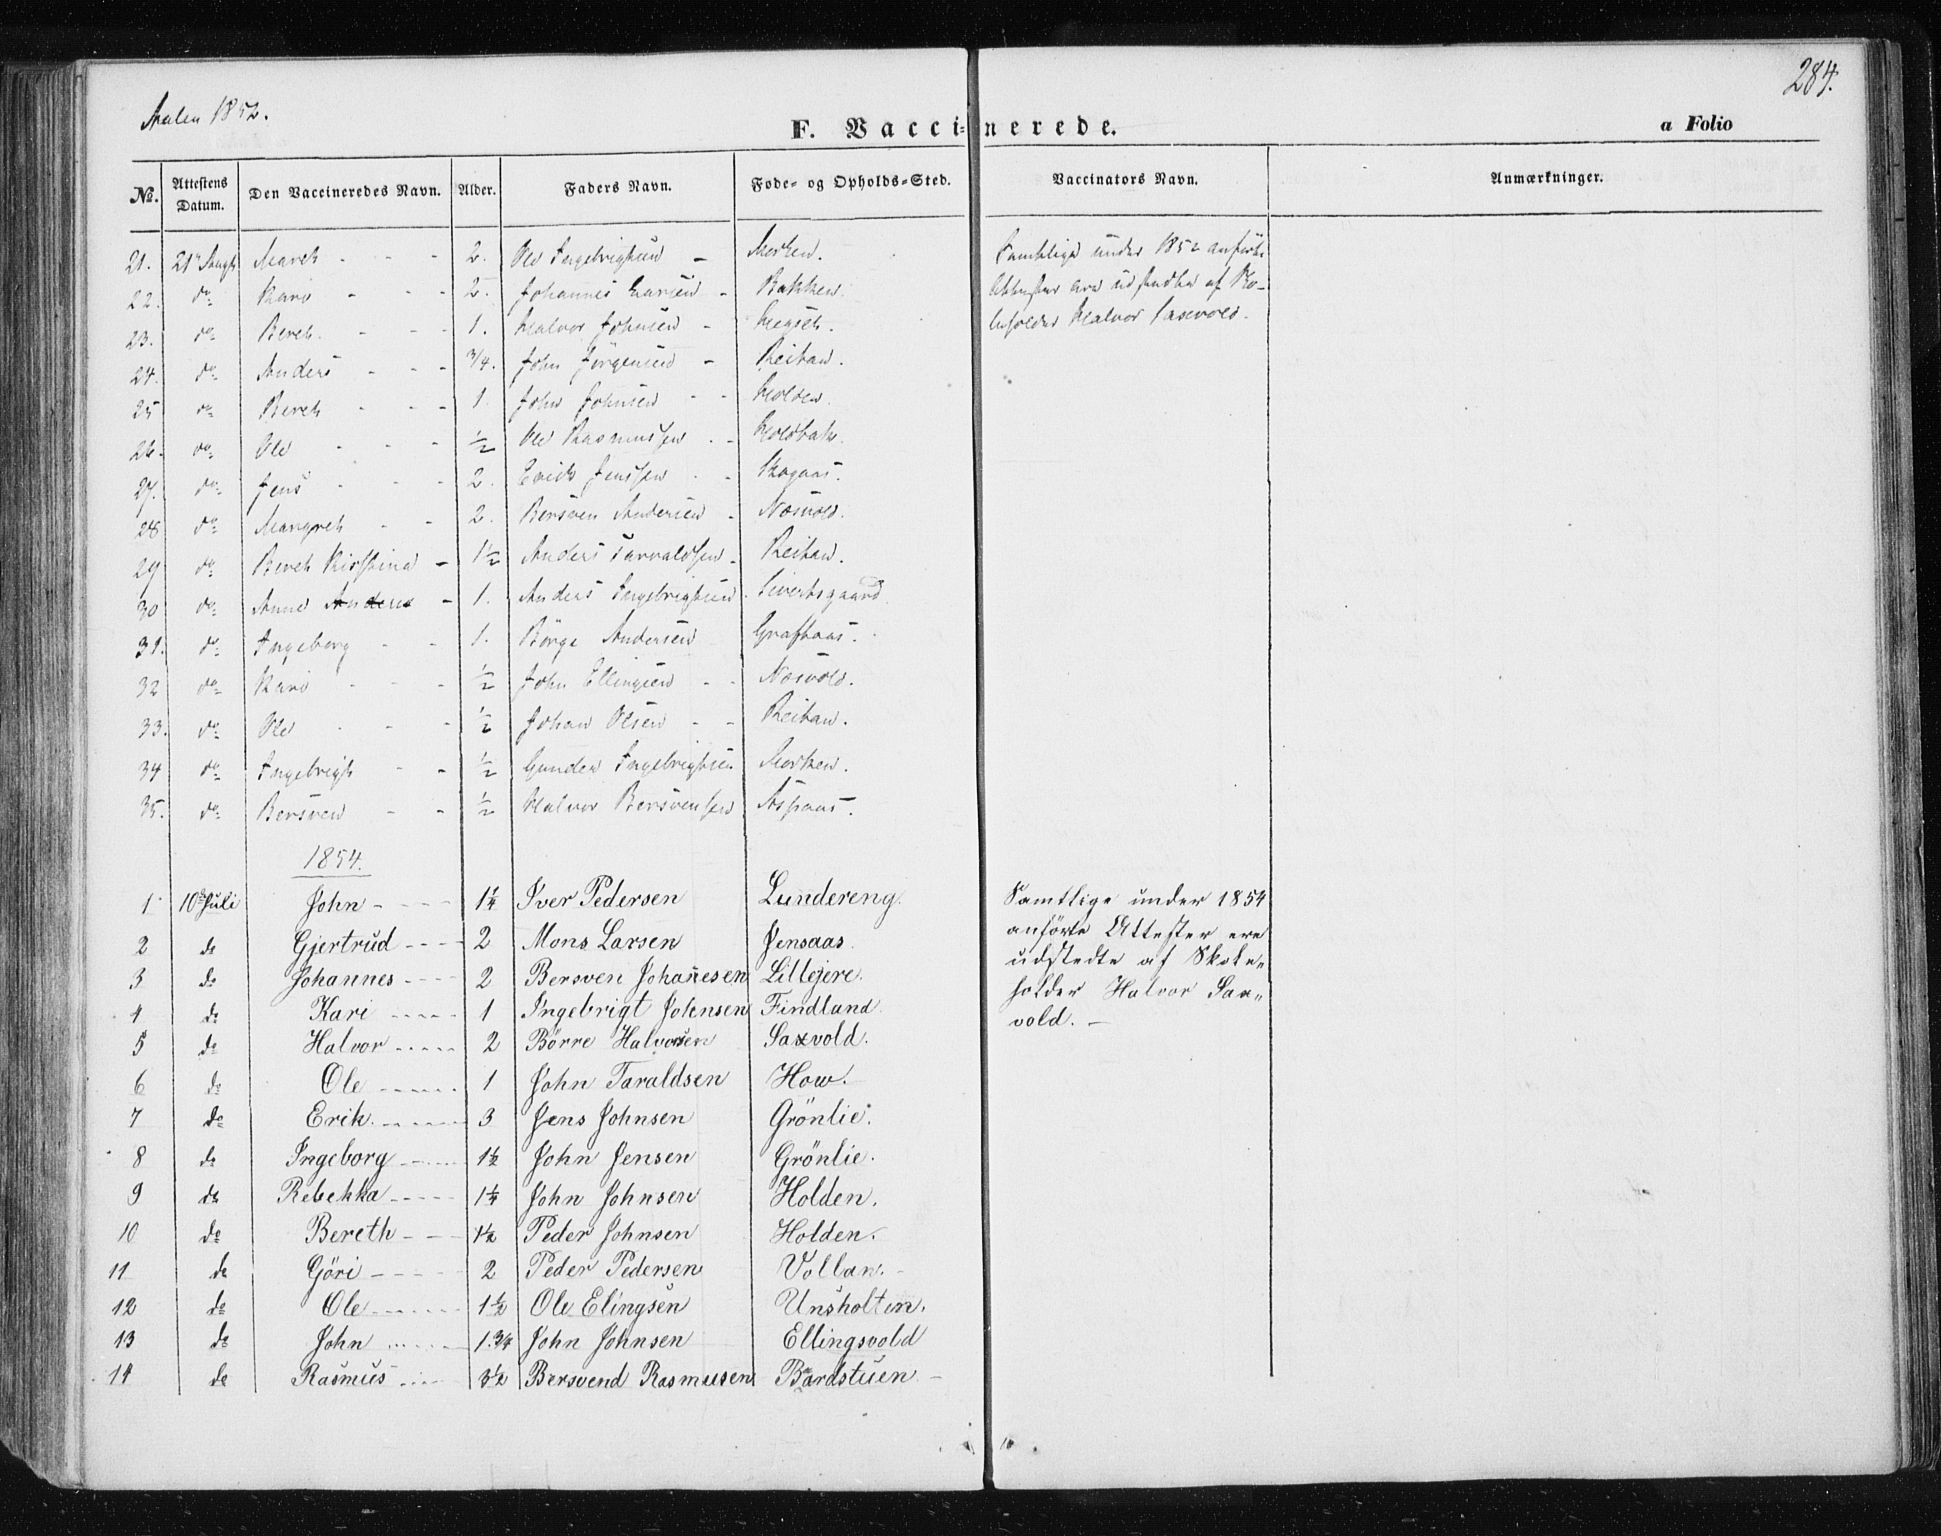 Aalen 1852.
284.
F. Vaccinerede.
a Folio
No. Attestens Datum. Den Vaccineredes Navn. Alder. Faders Navn. Føde- og Opholds-Sted. Vaccinators Navn. Anmærkninger.
21. 21de Augst Mareth - - - 2. Ole Ingebrigtsen - Morken. Samtlige under 1852 anførte
22. do Kari - - - 2. Johannes Larsen - Bakken. Attester ere udstedte af Sko-
23. do Bereth. - - - 1. Halvor Johnsen - leholder Halvor Saxvold.
24. do Anders - - - 3/4. John Jörgensen - Reitan.
25 do Bereth - - - 1 John Johnsen - - Holden.
26. do Ole - - - 1/2 Ole Rasmussen - - Holdbak.
27. do Jens - - - 2. Erich Jenssen - - Skogaas.
28 do Mangreth - - 2. Bersven Andersen - Næsvold.
29 do Bereth Kirstina - 1 1/2 Anders Tarraldsen - Reitan.
30 do Anne Anders - 1. Anders Ingebrigtsen - Sivertsgaard
31. do Ingeborg - - 1. Börge Andersen Grafhaas.
32 do Kari - - - 1/2 John Ellingsen - - Næsvold.
33. do Ole - - - 1/2 Johan Olsen - - Reitan.
34 do Ingebrigt - - 1/2 Gunder Ingebrigtsen Morken.
35. do Bersven - - 1/2 Halvor Bersvensen Aspaas.
1854.
1 10de Juli John - - - 1 1/4 Iver Pedersen Lundereng. Samtlige under 1854
2 do Gjertrud - - - 2 Mons Larsen Jensaas. anførte Attester ere
3 do Johannes - - - 2 Bersven Johanesen Lillejere. udstedte af Skole-
4 do Kari - - - 1 Ingebrigt Johnsen Findland. holder Halvor Sax-
5 do Halvor - - - 2 Børre Halvorsen Saxvold. vold. -
6 do Ole - - - 1 John Taraldsen How.
7 do Erik. - - - 3 Jens Johnsen Grönlie.
8 do Ingeborg - - - 1 1/2 John Jensen Grönlie.
9 do Rebekka - - - 1 1/4 John Johnsen Holden.
10 do Bereth - - - 1 1/2 Peder Johnsen Holden.
11 do Göri - - - 2 Peder Pedersen Vollan. -
12 do Ole - - - 1 1/2 Ole Elingsen Unsholten.
13 do John - - - 1 3/4 John Johnsen Ellingsvold
14 do Rasmus - - - 3 1/2 Bersvend Rasmusen Bardstuen -